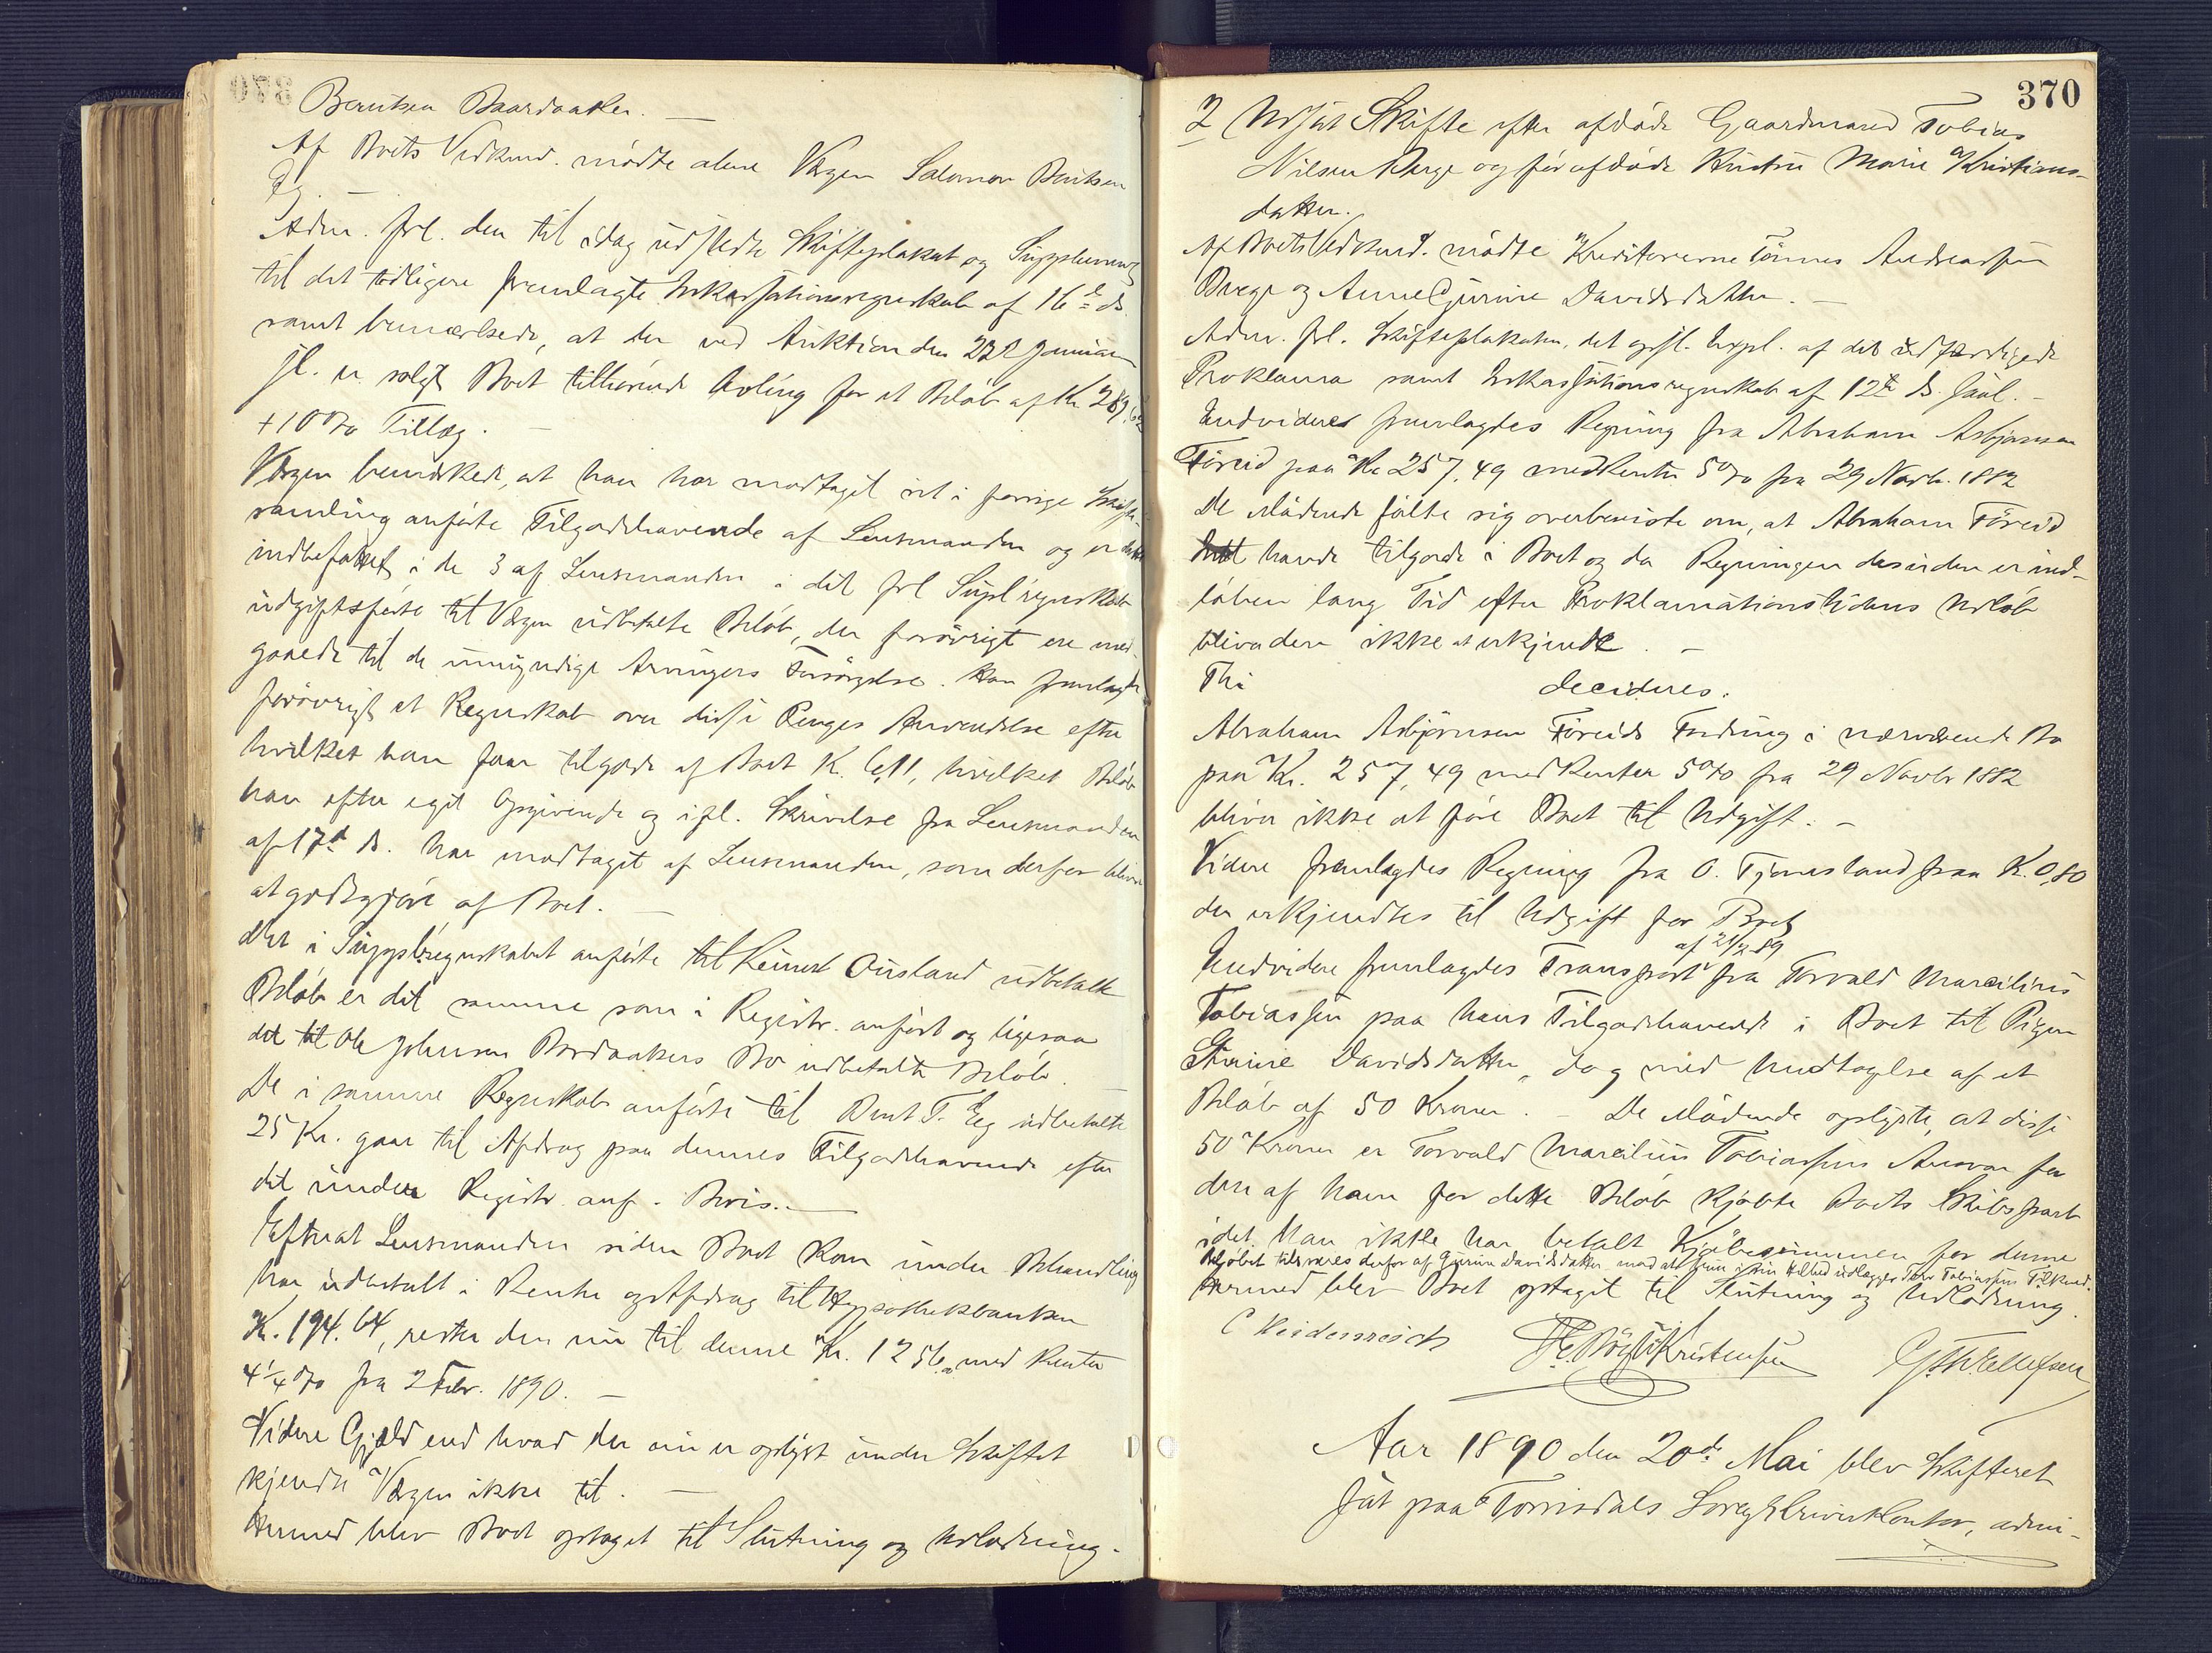 Berntsen Baardaaker. —
Af Boets Vedkmd. mødte alene Værgen Salomon Berntsen
Eg. —
Adm. frl. den til idag udstedte Skifteplakat og Supplement
til det tidligere fremlagte Inkassationsregnskab af 16de ds.
samt bemærkede, at der ved Auktion den 23de Januar
sl. er solgt Boet tilhørende Avling for et Beløb af Kr. 289,
+ 10 % Tillæg. —
Værgen bemærkede, at han har modtaget det i forrige Skifte-
samling anførte Tilgodehavende af Lensmanden og er dette
indbefattet i de 3 af Lensmanden i det frl. Supl.regnskab
udgiftsførte til Værgen udbetalte Beløb, der forøvrigt ere med-
gaaede til de umyndige Arvingers Forsørgelse. Han fremlagde
forøvrigt et Regnskab over disse Penges Anvendelse efter
hvilket han faar tilgode af Boet K. 6,11, hvilket Beløb
han efter eget Opgivende og ifl. Skrivelse fra Lensmanden
af 17de ds. har modtaget af Lensmanden, som derfor bliver
at godtgjøre af Boet. —
Det i Suppl.regnskabet anførte til Reinert Ousland udbetalte
Beløb er det samme som i Registr. anført og ligesaa
det til Ole Johnsen Bordaakers Bo udbetalte Beløb. —
De i samme Regnskab anførte til Bernt T. Eg udbetalte
25 Kr. gaar til Afdrag paa dennes Tilgodehavende efter
det under Registr. anf. Bevis. —
Efterat Lensmanden siden Boet kom under Behandling
har udbetalt i Rente og Afdrag til Hypothekbanken
K. 194.64, rester der nu til denne Kr. 1256 med Renter
4¼ % fra 2 Febr. 1890. —
Videre Gjæld end hvad der nu er oplyst under Skiftet
kjendte Værgen ikke til. —
Hermed blev Boet optaget til Slutning og Udlodning.
370
2 Udsat Skifte efter afdøde Gaardmand Tobias
Nilsen Berge og før afdøde Hustru Marie Kristians-
datter.
Af Boets Vedkmd. mødte Kreditorerne Tønnes Andreassen
Berge og Anne Gurine Davidsdatter. —
Adm. frl. Skifteplakaten, det opsl. Expl. af det udfærdigede
Proklama samt Inkassationsregnskab af 12te ds. saal. —
Endvidere fremlagdes Regning fra Abraham Asbjørnsen
Føreid paa Kr. 257,49 med Renter 5 % fra 29 Novb. 1882
De Mødende følte sig overbeviste om, at Abraham Føreid
havde tilgode i Boet og da Regningen desuden er ind-
løben lang Tid efter Proklamationstidens Udløb
bliver den ikke at erkjende. —
Thi decideres:
Abraham Asbjørnsen Føreids Fordring i nærværende Bo
paa Kr. 257,49 med Renter 5 % fra 29 Novbr 1882
bliver ikke at føre Boet til Udgift. —
Videre fremlagdes Regning fra O. Tjomsland paa K. 0,80
der erkjendtes til Udgift for Boet
af 21/2 89
Endvidere fremlagdes Transport fra Torvald Marcilius
Tobiassen paa hans Tilgodehavende i Boet til Pigen
Gurine Davidsdatter, dog med Undtagelse af et
Beløb af 50 Kroner. — De Mødende oplyste, at disse
50 Kroner er Torvald Marcilius Tobiassens Ansvar for
den af ham for dette Beløb kjøbte Boets Skibspart
idet han ikke har betalt Kjøbesummen for denne
Beløbet tilsvares derfor af Gurine Davidsdatter mod at hun i sin Helhed udlægges Torv. Tobiassens Tilkmd.
Hermed blev Boet optaget til Slutning og Udlodning.
C Heidenreich Kristensen G. Th. Ellefsen
Aar 1890 den 20de Mai blev Skifteret
sat paa Torrisdals Sorenskriverkontor, admi-